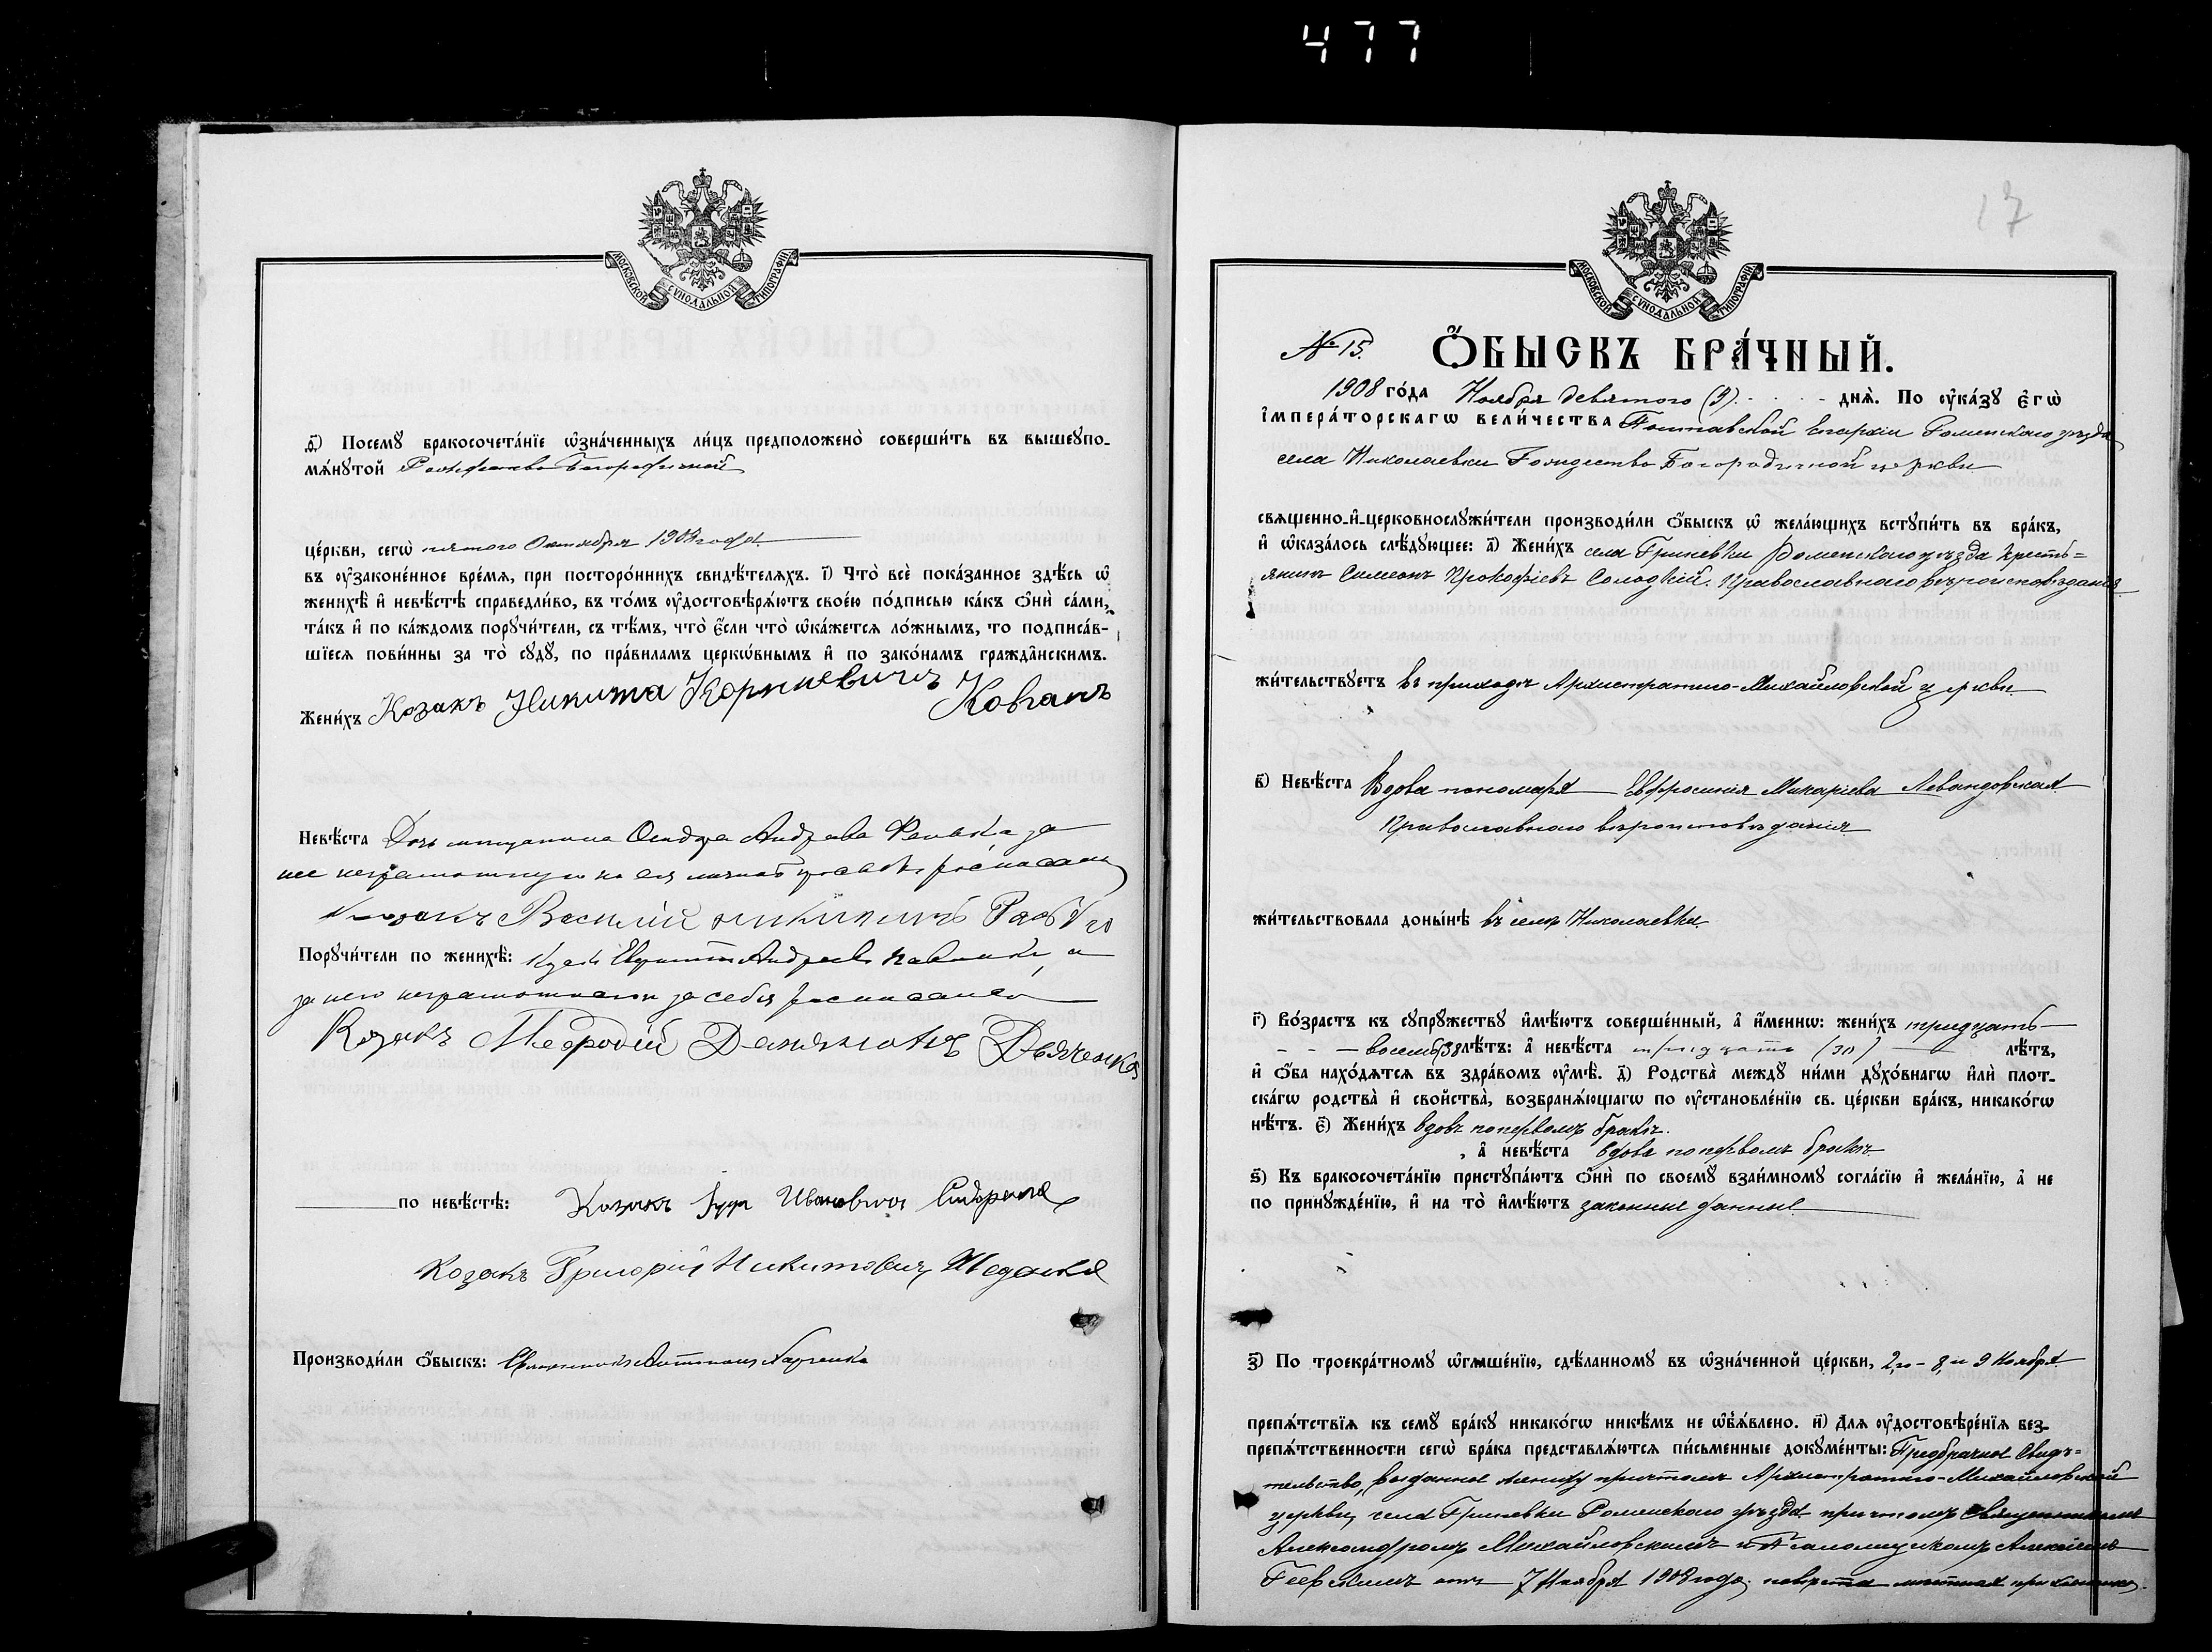 477
МОСКОВСКОЙ СУНОДАЛЬНОЙ ТИПОГРАФІИ
д҃) Посемꙋ̀ бракосочета́нїе ѡ҆зна́ченныхъ ли́цъ предположено̀ соверши́ть въ вышеꙋпо-
мѧ́нꙋтой Рождество Богородичной
це́ркви, сегѡ̀ пятого Октября 1908 года
въ ᲂу҆законе́нное вре́мѧ, при посторо́ннихъ свидѣ́телѧхъ. і҃) Что̀ всѐ пока́занное здѣ́сь ѡ҆
женихѣ̀ и҆ невѣ́стѣ справедли́во, въ то́мъ ᲂу҆достовѣрѧ́ютъ свое́ю по́дписью ка́къ ѻ҆нѝ са́ми,
та́къ и҆ по ка́ждомъ порꙋчи́тели, съ тѣ́мъ, что̀ є҆́сли что̀ ѡ҆ка́жетсѧ ло́жнымъ, то подписа́в-
шїесѧ пови́нны за то̀ сꙋдꙋ̀, по пра́виламъ церко́внымъ и҆ по зако́намъ гражда́нскимъ.
Жени́хъ Козакъ Никита Корниевичъ Ковганъ
Невѣ́ста Дочь мещанина Андреева за
нее неграмотную по ея личной просьбѣ росписался
Козакъ Василій
Порꙋчи́тели по женихѣ̀: Андреевъ а
за него неграмотнаго и за себя росписался
Козакъ Мефодій Демяновъ Дьяченко
по невѣ́стѣ: Козакъ Ивановичъ Сидоренко
Козакъ Григорій Никитовичъ
Производи́ли ѻ҆́быскъ: Священникъ
17
МОСКОВСКОЙ СУНОДАЛЬНОЙ ТИПОГРАФІИ
№ 15. Ѻ҆́БЫСКЪ БРА́ЧНЫЙ.
1908 го́да Ноября девятого (9) днѧ̀. По ᲂу҆ка́зꙋ є҆гѡ̀
і҆мпера́торскагѡ вели́чества Полтавской Епархіи Роменскаго уѣзда
села Николаевки Рождество Богородичной церкви
свѧщенно-и҆-церковнослꙋжи́тели производи́ли ѻ҆́быскъ ѡ҆ жела́ющихъ встꙋпи́ть въ бра́къ,
и҆ ѡ҆каза́лось слѣ́дꙋющее: а҃) Жени́хъ села Гриневки Роменскаго уѣзда кресть=
янинъ Симеонъ Прокофіевъ Солодкій. Православнаго вѣроисповѣданія
жи́тельствꙋетъ въ приходѣ Архистратиго-Михайловской церкви
в҃) Невѣ́ста Вдова пономаря Евфросинія Макаріева Левандовская
Православнаго вѣроисповѣданія
жи́тельствовала доны́нѣ въ селѣ Николаевки
г҃) Во́зрастъ къ сꙋпрꙋ́жествꙋ и҆мѣ́ютъ соверше́нный, а҆ и҆́меннѡ: жени́хъ тридцать
восемь (38 лѣ́тъ: а҆ невѣ́ста тридцать (30) лѣ́тъ,
и҆ ѻ҆́ба нахо́дѧтсѧ въ здра́вомъ ᲂу҆мѣ̀. д҃) Родства̀ междꙋ̀ ни́ми дꙋхо́внагѡ и҆лѝ плот-
ска́гѡ родства̀ и҆ свойства̀, возбранѧ́ющагѡ по ᲂу҆становле́нїю св. це́ркви бра́къ, никако́гѡ
нѣ́тъ. є҃) Жени́хъ вдовъ по первомъ бракѣ.
, а҆ невѣ́ста вдова по первомъ бракѣ
ѕ҃) Къ бракосочета́нїю пристꙋпа́ютъ ѻ҆нѝ по своемꙋ̀ взаи́мномꙋ согла́сїю и҆ жела́нїю, а҆ не
по принꙋжде́нїю, и҆ на то̀ и҆мѣ́ютъ законные данные
з҃) По троекра́тномꙋ ѡ҆глаше́нїю, сдѣ́ланномꙋ въ ѡ҆зна́ченной це́ркви, 2го - 8 и 9 Ноября
препѧ́тствїѧ къ семꙋ̀ бра́кꙋ никако́гѡ никѣ́мъ не ѡ҆б̾ѧ́влено. и҃) Для ᲂу҆достовѣре́нїѧ без-
препѧ́тственности сегѡ̀ бра́ка представлѧ́ютсѧ пи́сьменные докꙋме́нты: Предбрачное Свидѣ=
тельство, выданное жениху причтомъ Архистратиго-Михайловской
церкви, села Гриневки Роменскаго уѣзда причтомъ Священникомъ
Александромъ Михайловскимъ и Псаломщикомъ Алексіемъ
отъ 7 Ноября 1908 года, невѣста мѣстная прихожанка.